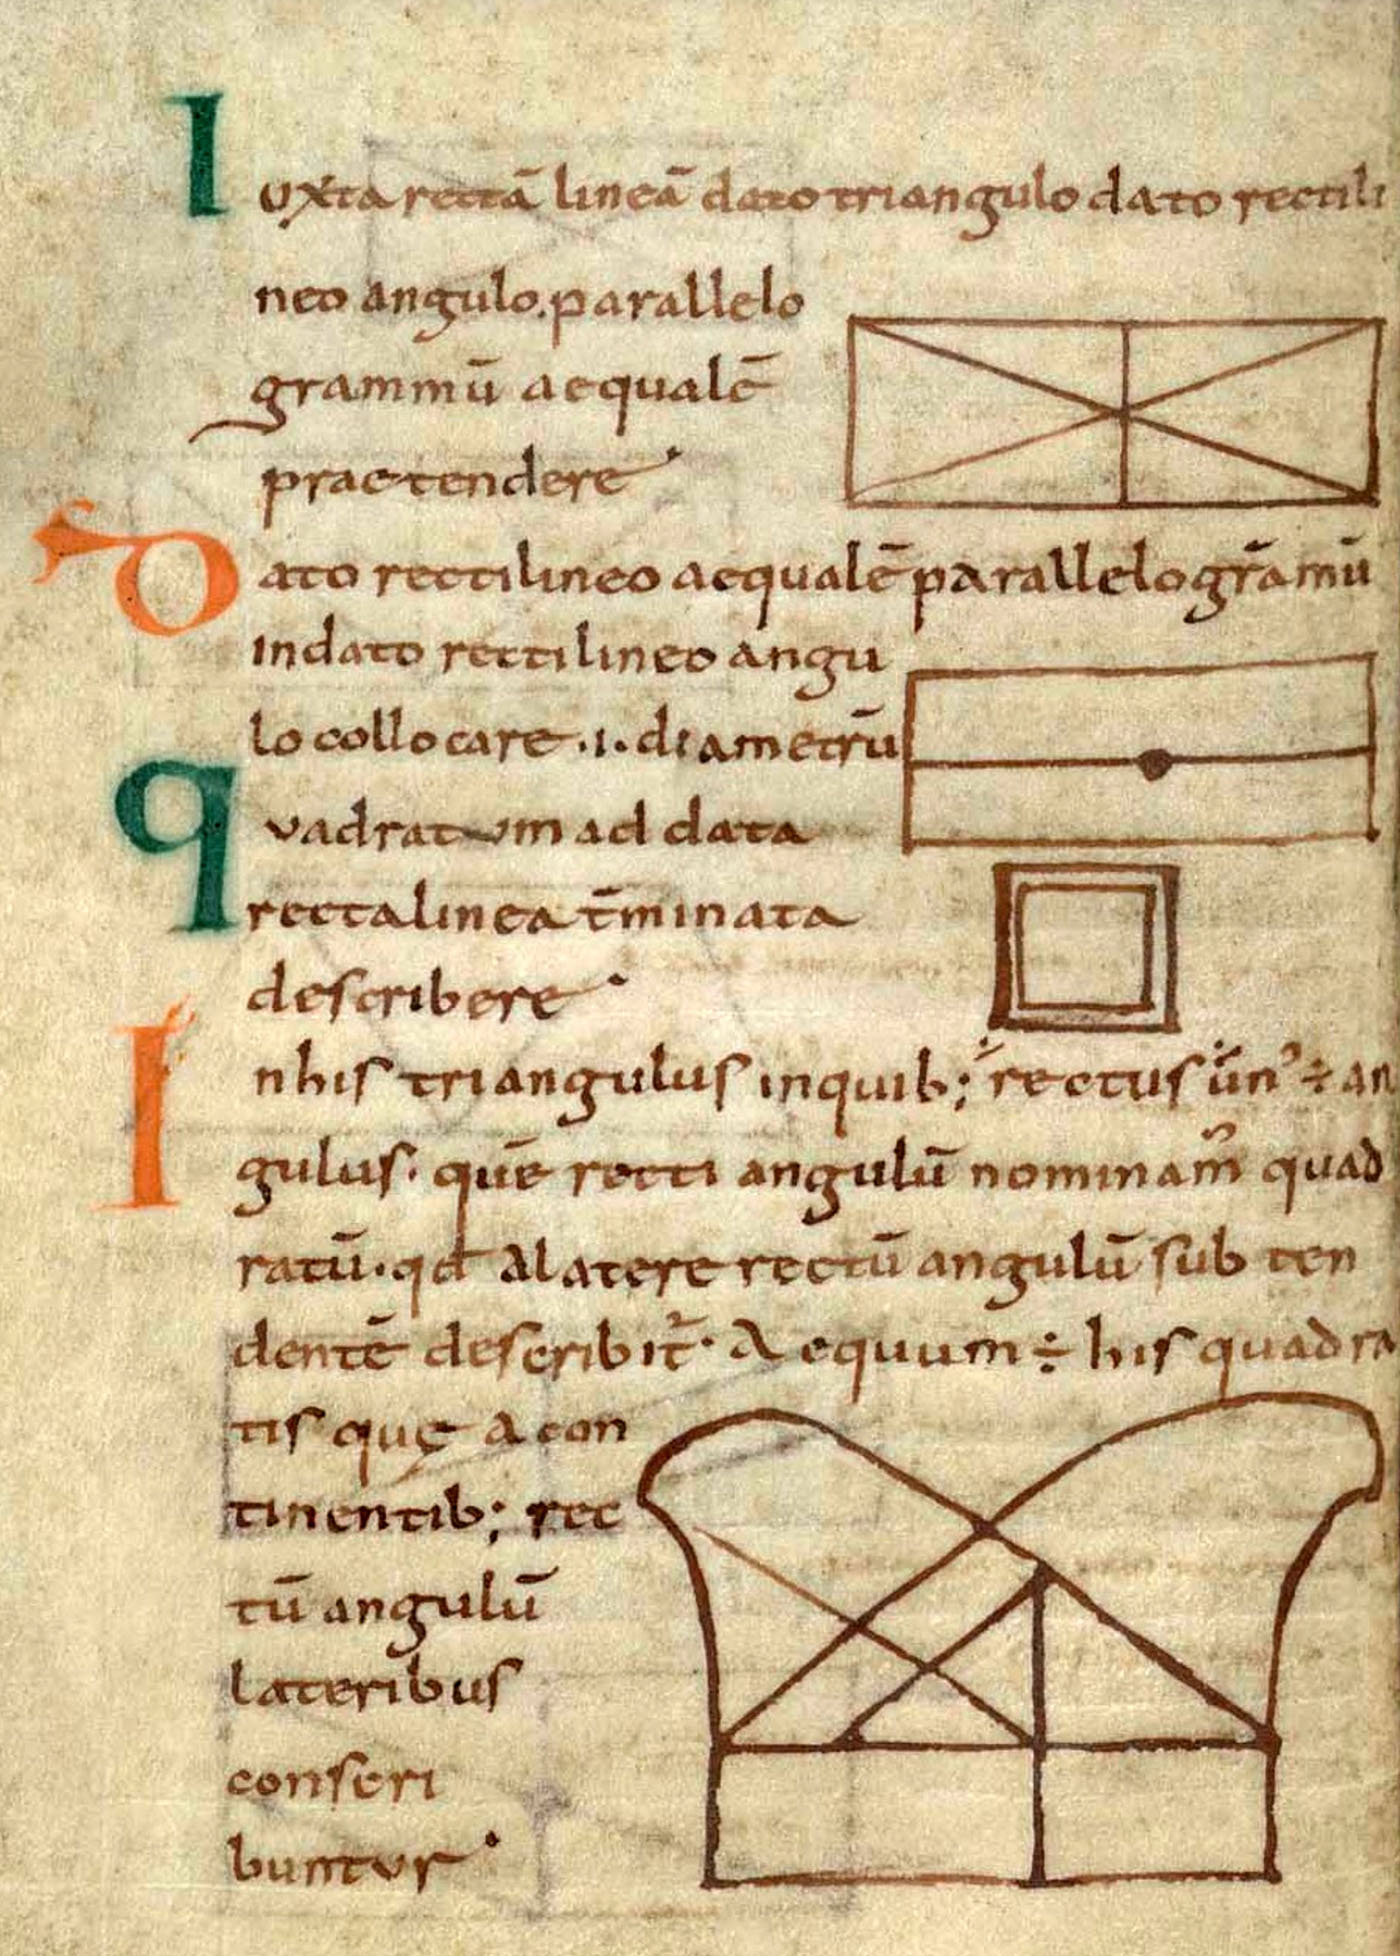 Iuxta rectā lineā dato triangulo dato rectili
neo angulo. parallelo
grammū aequalē
praetendere
Dato rectilineo aequalē parallelogrāmū
in dato rectilineo angu
lo collocare .i. diametrū
quadratum ad data
recta linea t̄minata
describere
In his triangulus in quib; rectus ūnꝰ ÷ an
gulus. quē recti angulū nominam̄ quad
ratū. qd A latere rectū angulū sub ten
dentē describit̄. Aequum ÷ his quadra
tis quę a con
tinentib; rec
tū angulū
lateribus
conscri
buntur